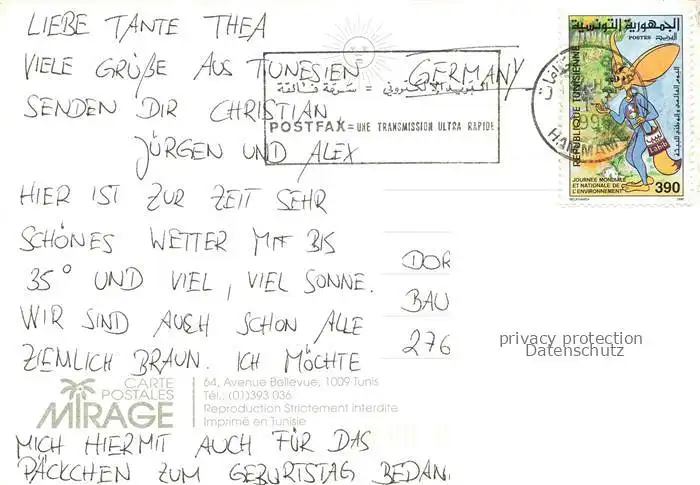 LIEBE TANTE THEA
VIELE GRÜßE AUS TUNESIEN
GERMANY
SENDEN DIR CHRISTIAN
JÜRGEN UND ALEX
HIER IST ZUR ZEIT SEHR
SCHÖNES WETTER MIT BIS
35° UND VIEL, VIEL SONNE.
WIR SIND AUCH SCHON ALLE
ZIEMLICH BRAUN. ICH MÖCHTE
MICH HIERMIT AUCH FÜR DAS
PÄCKCHEN ZUM GEBURTSTAG BEDAN
DOR
BAU
276
privacy protection
Datenschutz
CARTE
POSTALES
MIRAGE
64, Avenue Bellevue, 1009 Tunis
Tél.: (01)393 036
Reproduction Strictement interdite
Imprimé en Tunisie
البريد الإلكتروني = سرعة فائقة
POSTFAX = UNE TRANSMISSION ULTRA RAPIDE
HAMMAM
الجمهورية التونسية
POSTES البريد
REPUBLIQUE TUNISIENNE
لبيب
Labib
JOURNEE MONDIALE
ET NATIONALE DE
L'ENVIRONNEMENT
390